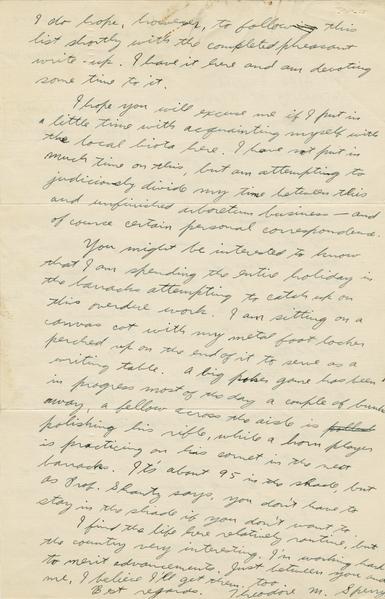 I do hope, however, to follow this
list shortly with the completed pheasant
write-up. I have it here and am devoting
some time to it.
I hope you will excuse me if I put in
a little time with acquainting myself with
the local biota here. I have not put in
much time on this, but am attempting to
judiciously divide my time between this
and unfinished arboretum business — and
of course certain personal correspondence.
You might be interested to know
that I am spending the entire holiday in
the barracks attempting to catch up on
this overdue work. I am sitting on a
canvas cot with my metal foot locker
perched up on the end of it to serve as a
writing table. A big poker game has been
in progress most of the day a couple of bunks
away, a fellow across the aisle is
polishing his rifle, while a horn player
is practicing on his cornet in the next
barracks. It's about 95 in the shade, but
as Prof. says, you don't have to
stay in the shade if you don't want to.
I find the life here relatively routine, but
the country very interesting. I'm working hard
to merit advancements. Just between you and
me, I believe I'll get them, too.
Best regards. Theodore M. Sperry